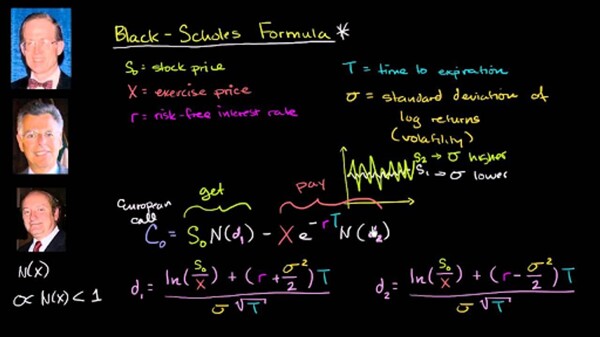 Black-Scholes Formula *
S₀ = stock price
X = exercise price
r = risk-free interest rate
T = time to expiration
σ = standard deviation of
log returns
(volatility)
S₂ → σ higher
S₁ → σ lower
get
pay
European
call
C₀ = S₀N(d₁) - Xe^-rT N(d₂)
N(x)
∝ N(x) < 1
d₁ = (ln(S₀/X) + (r + σ²/2)T) / (σ√T)
d₂ = (ln(S₀/X) + (r - σ²/2)T) / (σ√T)